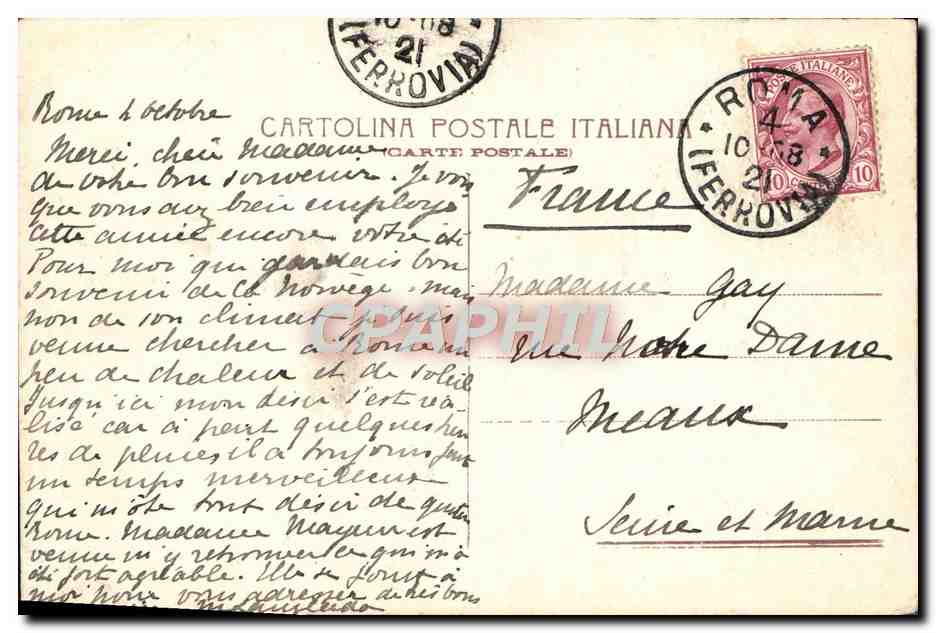 10·08
21
(FERROVIA)
ROMA
4
10·08
21
(FERROVIA)
POSTE ITALIANE
10 10
CARTOLINA POSTALE ITALIANA
(CARTE POSTALE)
Rome 4 octobre
Merci, chère Madame
de votre bon souvenir. Je vois
que vous avez bien employé
cette année encore votre été
Pour moi qui gardais bon
souvenir de la Norvège, mais
non de son climat je suis
venue chercher à Rome un
peu de chaleur et de soleil
Jusqu'ici mon désir s'est réa-
lisé car à part quelques heu
res de pluies il a toujours fait
un temps merveilleux
qui m'ôte tout désir de quitter
Rome. Madame Mayeur est
venue m'y retrouver ce qui m'a
été fort agréable. Elle se joint à
moi pour vous adresser de très bons
France
Madame Gay
rue Notre Dame
Meaux
Seine et Marne
CPAPHIL